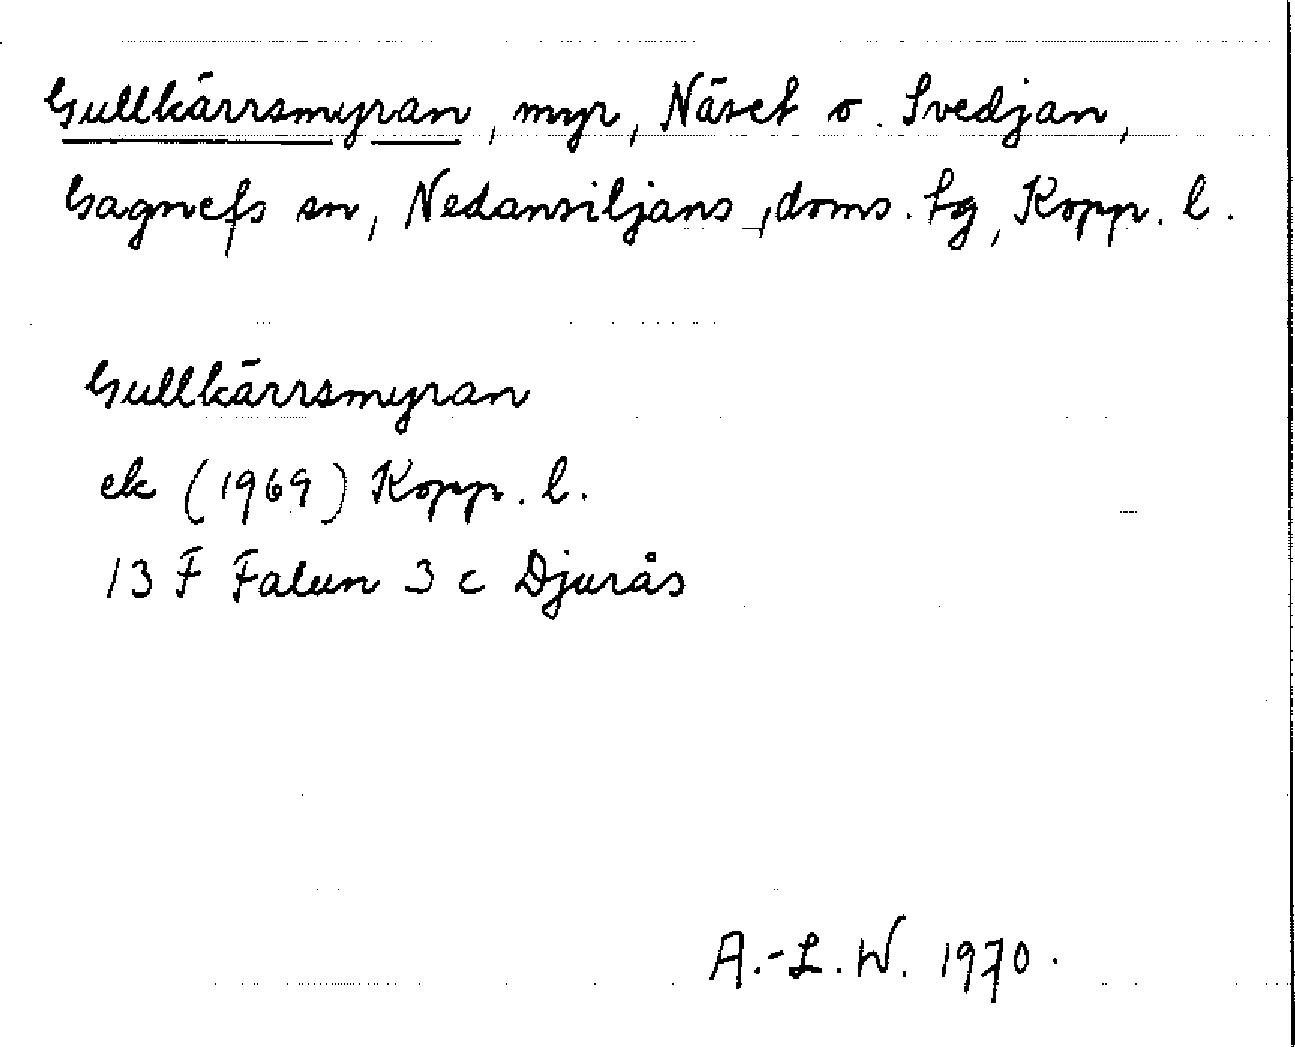 Gullkärrsmyran, myr, Näset o. Svedjan,
Gagnefs sn, Nedansiljans, doms. tg, Kopp. l.
Gullkärrsmyran
ek (1969) Kopp. l.
13 F Falun 3 c Djurås
A.-L. W. 1970.